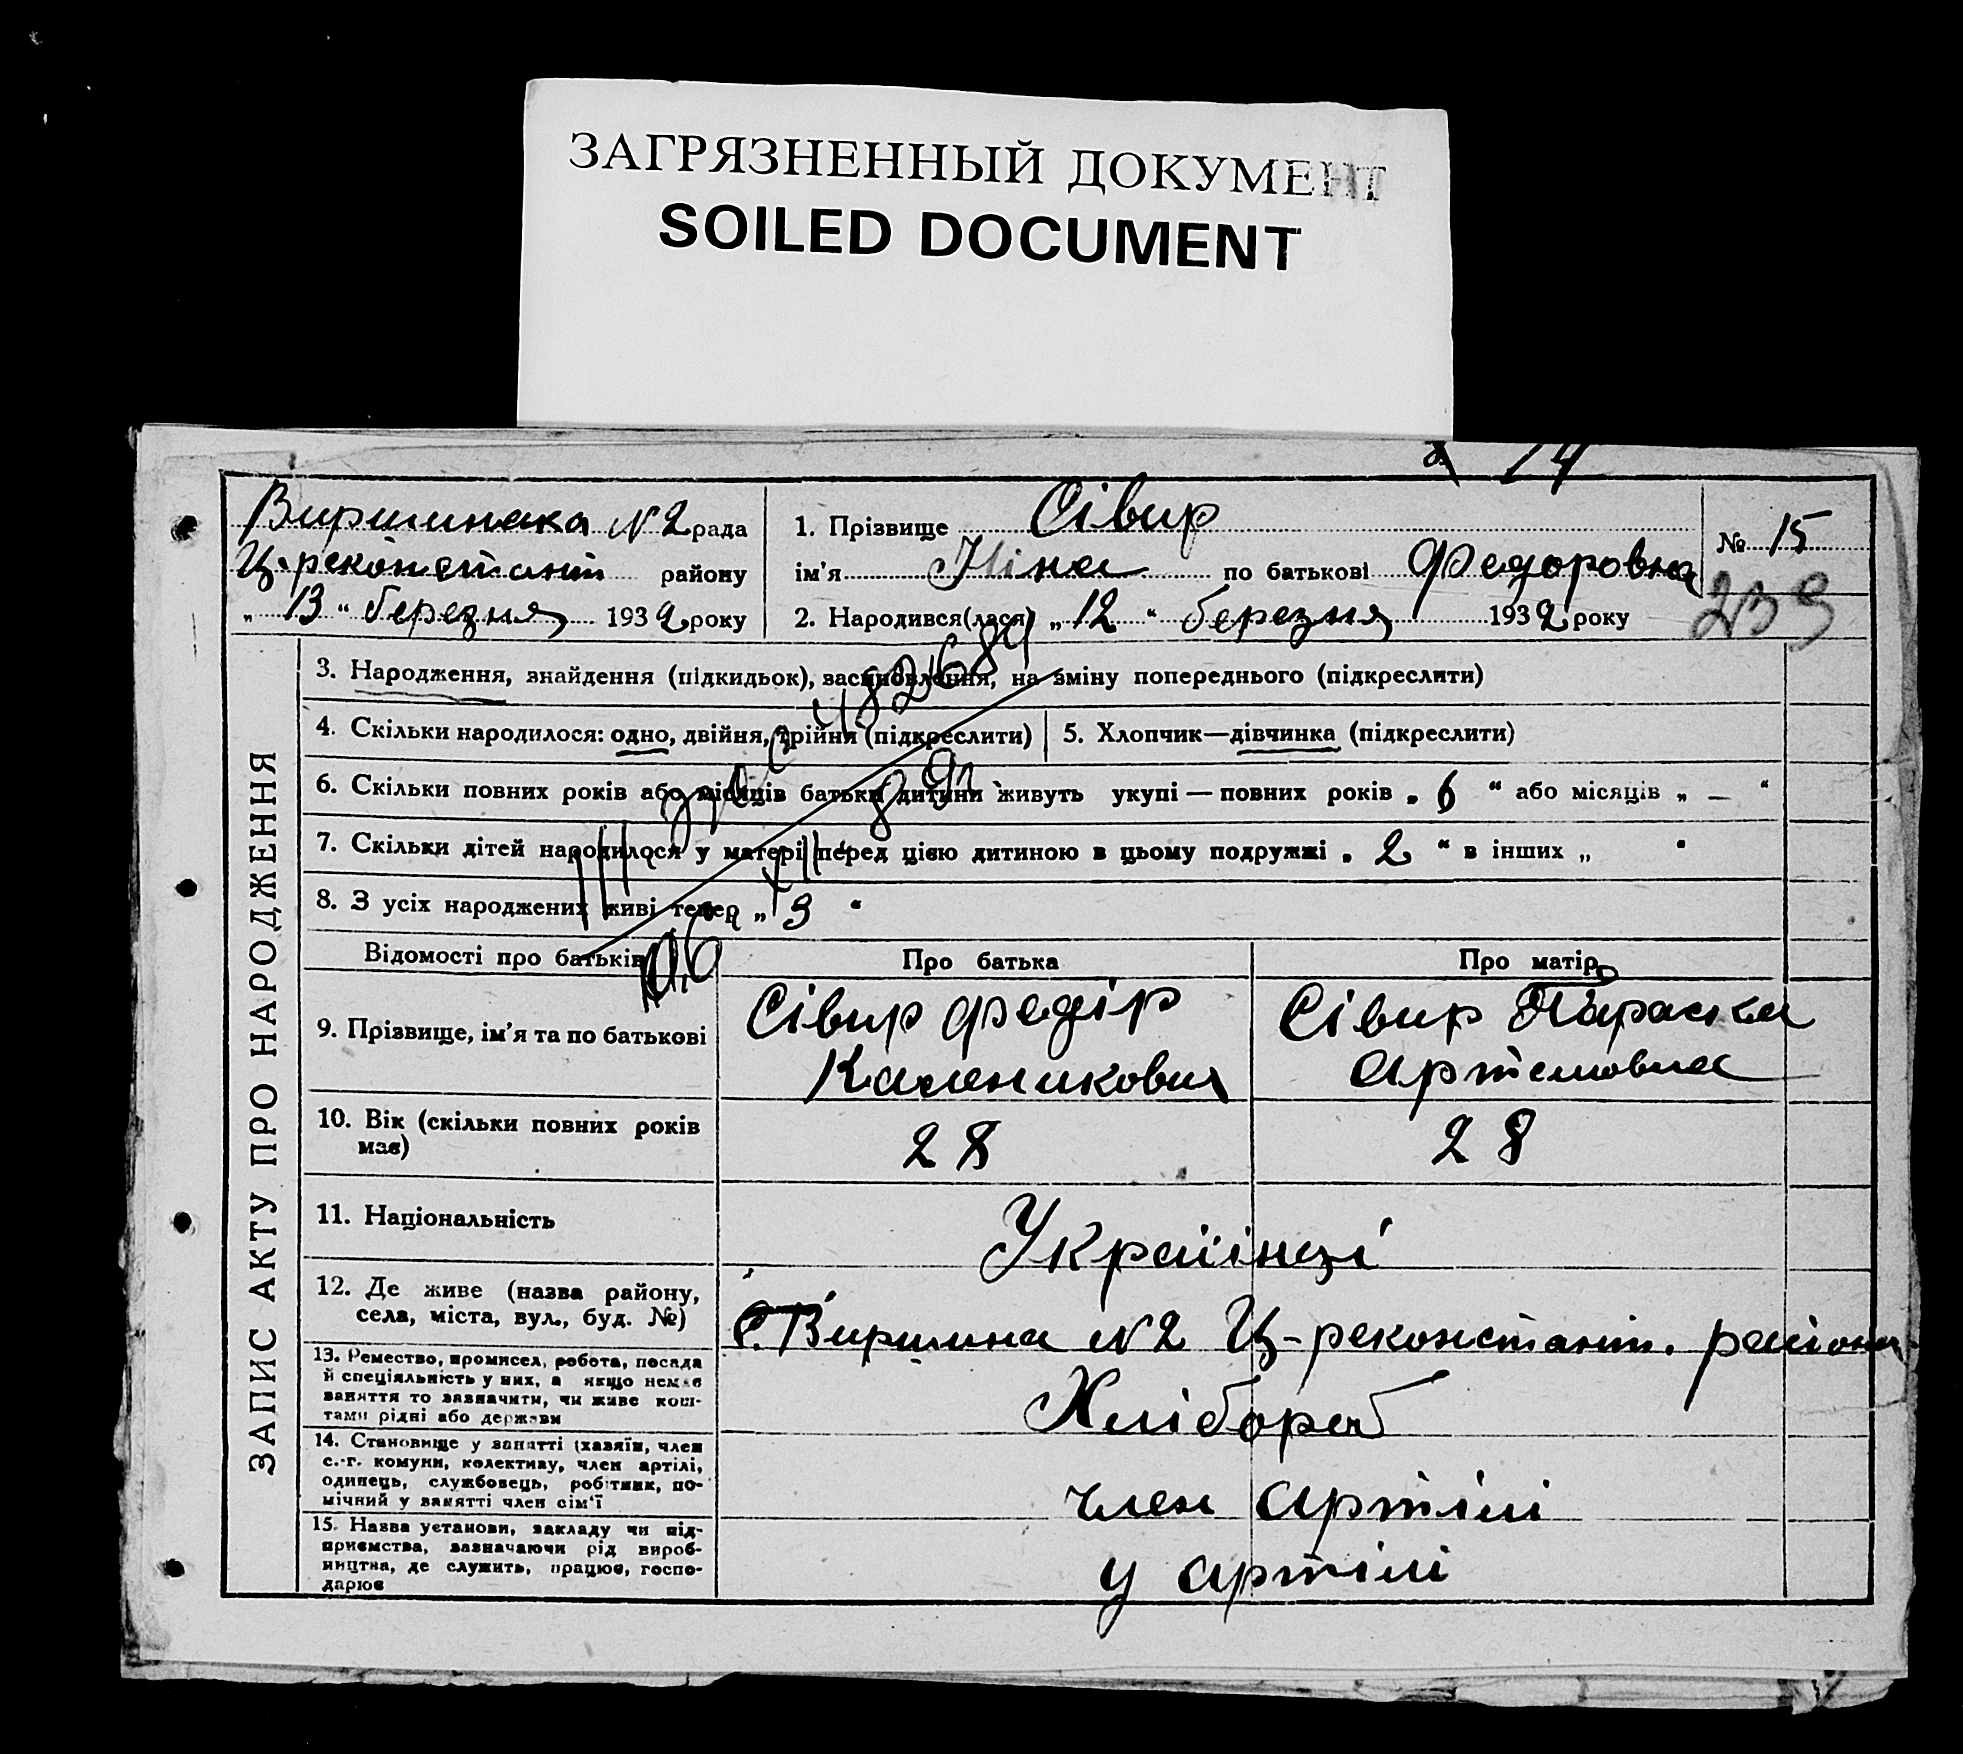 ЗАГРЯЗНЕННЫЙ ДОКУМЕНТ
SOILED DOCUMENT
14
Виршинська N2 рада
Ц-реконстант району
„ 13 “ березня 1932 року
1. Прізвище Сівир
ім'я Ніна по батькові Федоровна
2. Народився(лася) „ 12 “ березня 1932 року
№ 15
239
ЗАПИС АКТУ ПРО НАРОДЖЕННЯ
3. Народження, знайдення (підкидьок), засиновлення, на зміну попереднього (підкреслити)
4. Скільки народилося: одно, двійня, трійня (підкреслити)
5. Хлопчик—дівчинка (підкреслити)
6. Скільки повних років або місяців батьки дитини живуть укупі — повних років „ 6 “ або місяців „ — “
7. Скільки дітей народилося у матері перед цією дитиною в цьому подружжі „ 2 “ в інших „ “
8. З усіх народжених живі тепер „ 3 “
482684
Відомості про батьків
Про батька
Про матір
9. Прізвище, ім'я та по батькові
Сівир Федір
Каленикович
Сівир Параска
Артемовна
10. Вік (скільки повних років
має)
28
28
11. Національність
Українці
12. Де живе (назва району,
села, міста, вул., буд. №)
С. Виршина N2 Ц-реконстант. району
13. Ремество, промисел, робота, посада
й спеціяльність у них, а якщо немає
заняття то зазначити, чи живе кош-
тами рідні або держави
Хлібороб
14. Становище у занятті (хазяїн, член
с.-г. комуни, колективу, член артілі,
одинець, службовець, робітник, по-
мічний у занятті член сім'ї
член артілі
15. Назва установи, закладу чи під-
приємства, зазначаючи рід вироб-
ництва, де служить, працює, госпо-
дарює
у артілі